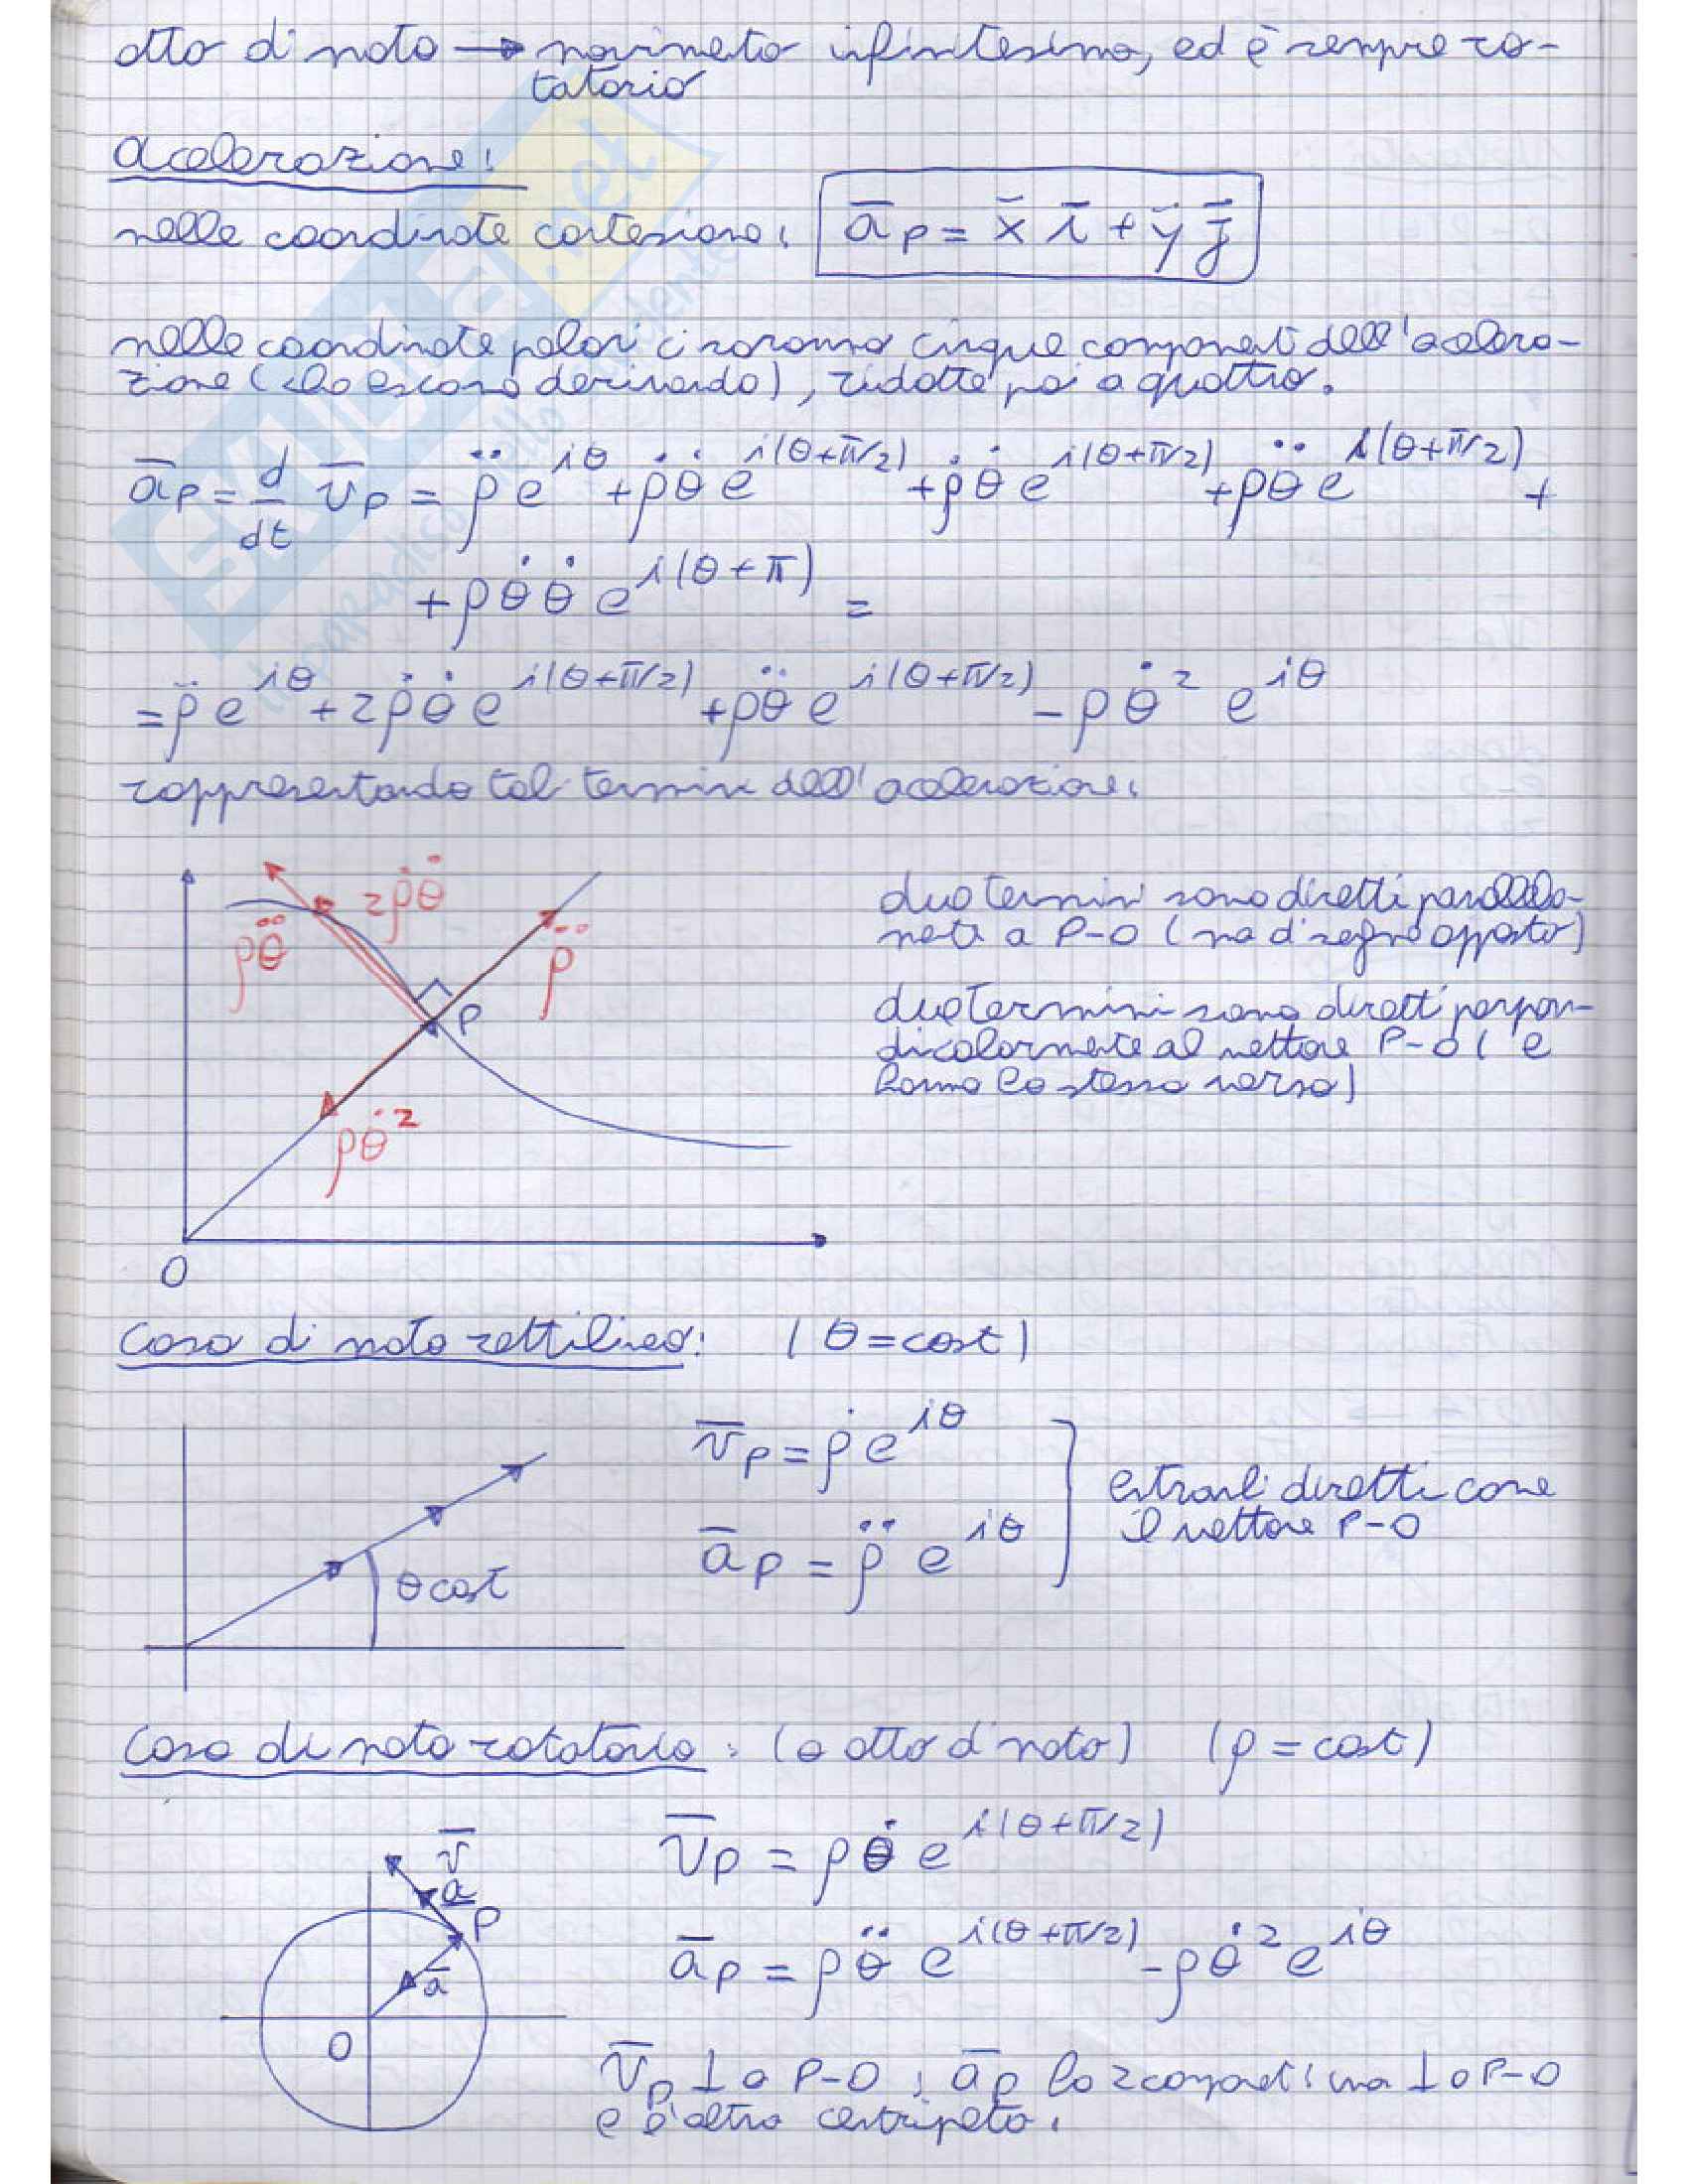 atto di moto → movimento infinitesimo, ed è sempre ro-
tatorio
accelerazione:
nelle coordinate cartesiane: a̅_P = ẍ i̅ + ÿ j̅
nelle coordinate polari ci saranno cinque componenti dell'accelera-
zione (che escono derivando), ridotte poi a quattro.
a̅_P = d/dt v̅_P = ρ̈ e^{iθ} + ρ̇ θ̇ e^{i(θ+π/2)} + ρ̇ θ̇ e^{i(θ+π/2)} + ρ θ̈ e^{i(θ+π/2)} +
+ ρ θ̇ θ̇ e^{i(θ+π)} =
= ρ̈ e^{iθ} + 2 ρ̇ θ̇ e^{i(θ+π/2)} + ρ θ̈ e^{i(θ+π/2)} - ρ θ̇² e^{iθ}
rappresentando tali termini dell'accelerazione:
2ρ̇θ̇
ρθ̈
ρ̈
P
ρθ̇²
O
due termini sono diretti parallela-
mente a P-O (ma di segno opposto)
due termini sono diretti perpen-
dicolarmente al vettore P-O (e
hanno lo stesso verso)
caso di moto rettilineo: (θ = cost)
v̅_P = ρ̇ e^{iθ}
a̅_P = ρ̈ e^{iθ}
entrambi diretti come
il vettore P-O
θ cost
caso di moto rotatorio: (o atto di moto) (ρ = cost)
v̅
a
P
a̅
O
v̅_P = ρ θ̇ e^{i(θ+π/2)}
a̅_P = ρ θ̈ e^{i(θ+π/2)} - ρ θ̇² e^{iθ}
v̅_P ⊥ a P-O ; a̅_P ha 2 componenti: una ⊥ a P-O
e l'altra centripeta.
SKUOLA.net
il paradiso dello studente